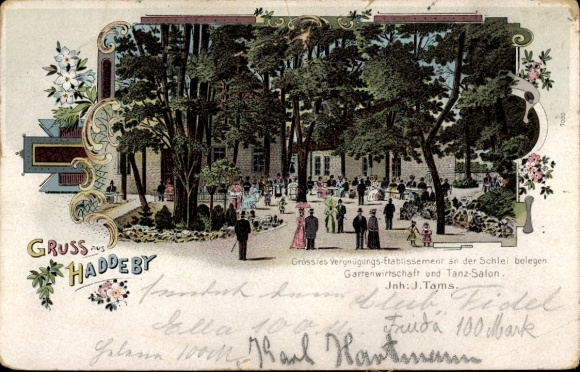 GRUSS aus
HADDEBY
7000
Grösstes Vergnügungs-Etablissement an der Schlei belegen
Gartenwirtschaft und Tanz-Salon.
Jnh: J. Tams.
Club Fidel
Ella 100 M. Frieda 100 Mark
Helena 100 M. Karl Hartmann